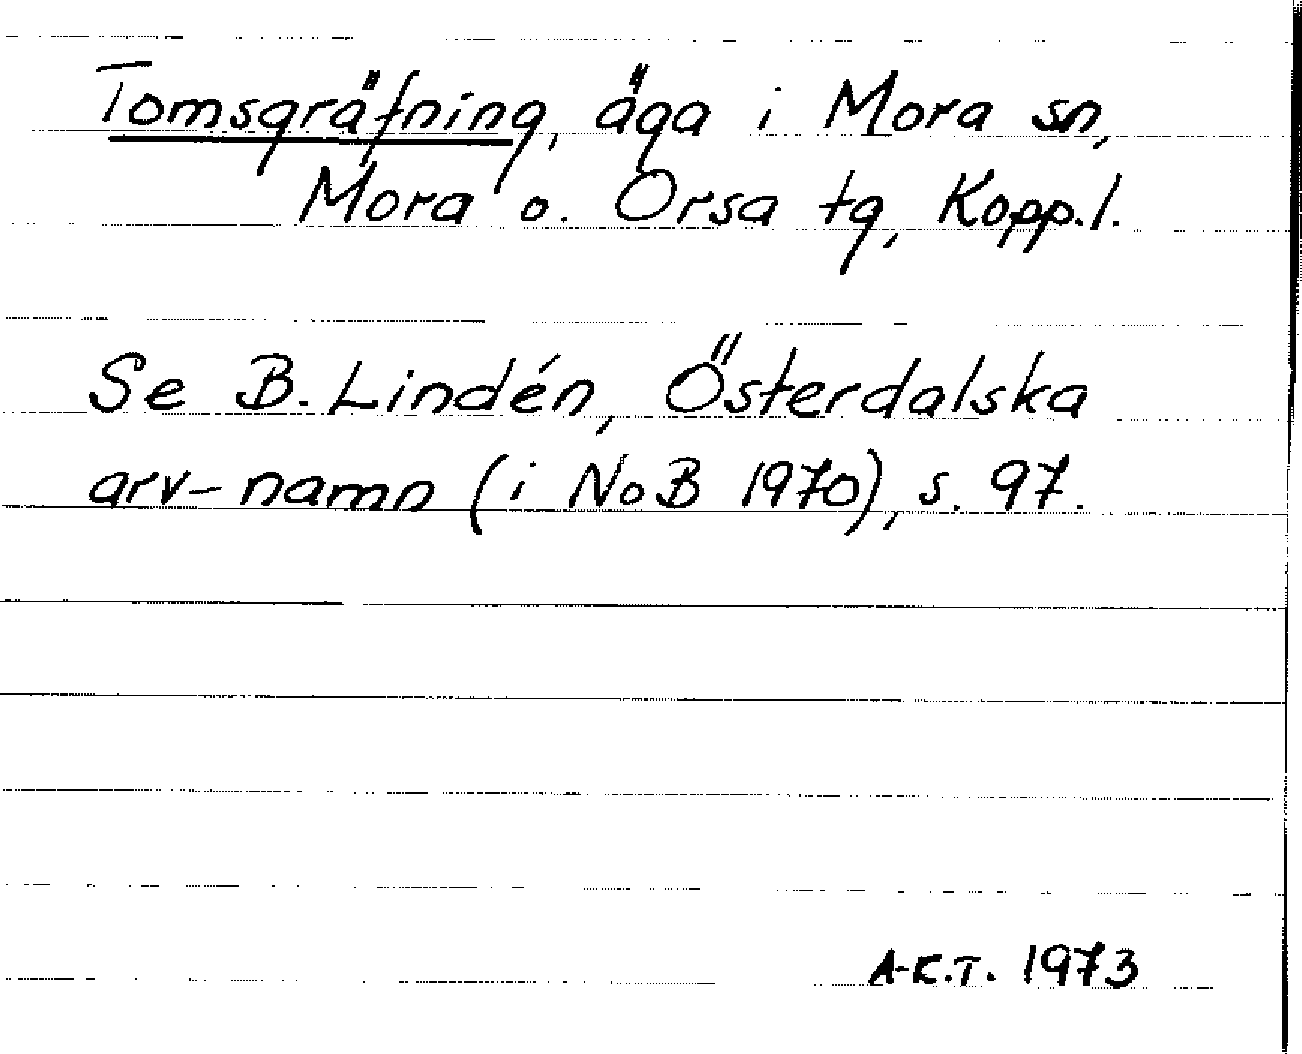 Tomsgräfning, äga i Mora sn,
Mora o. Orsa tg, Kopp.l.
Se B. Lindén, Österdalska
arv-namn (i NoB 1970), s. 97.
A-K.T. 1973